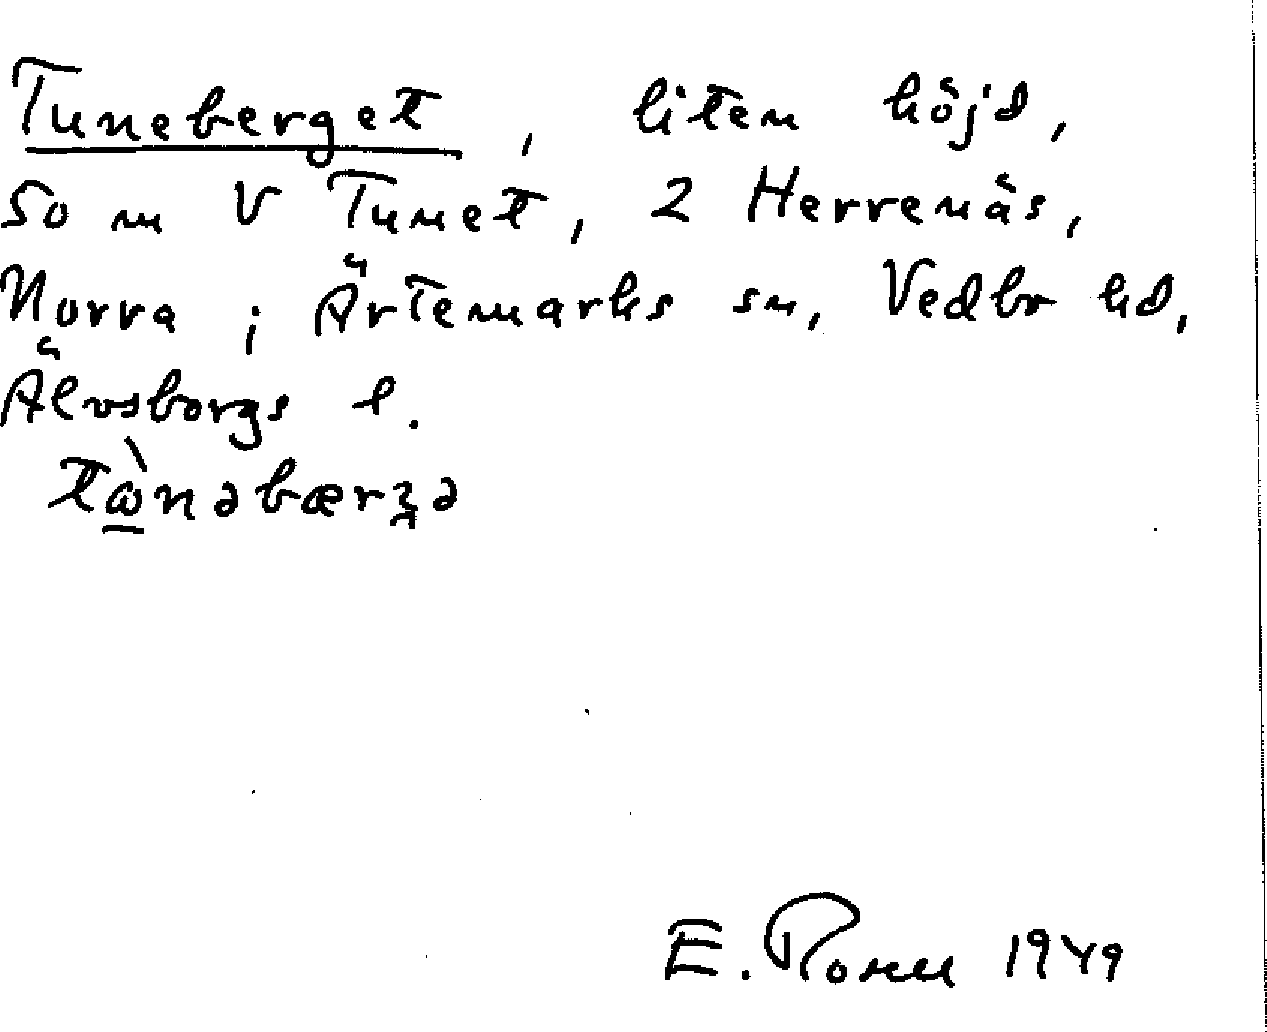 Tuneberget, liten höjd,
50 m V Tunet, 2 Herrenäs,
Norra; Ärtemarks sn, Vedbo hd,
Älvsborgs l.
E. Rosell 1949